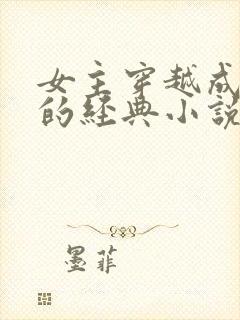 女主穿越成
的经典小说
墨菲